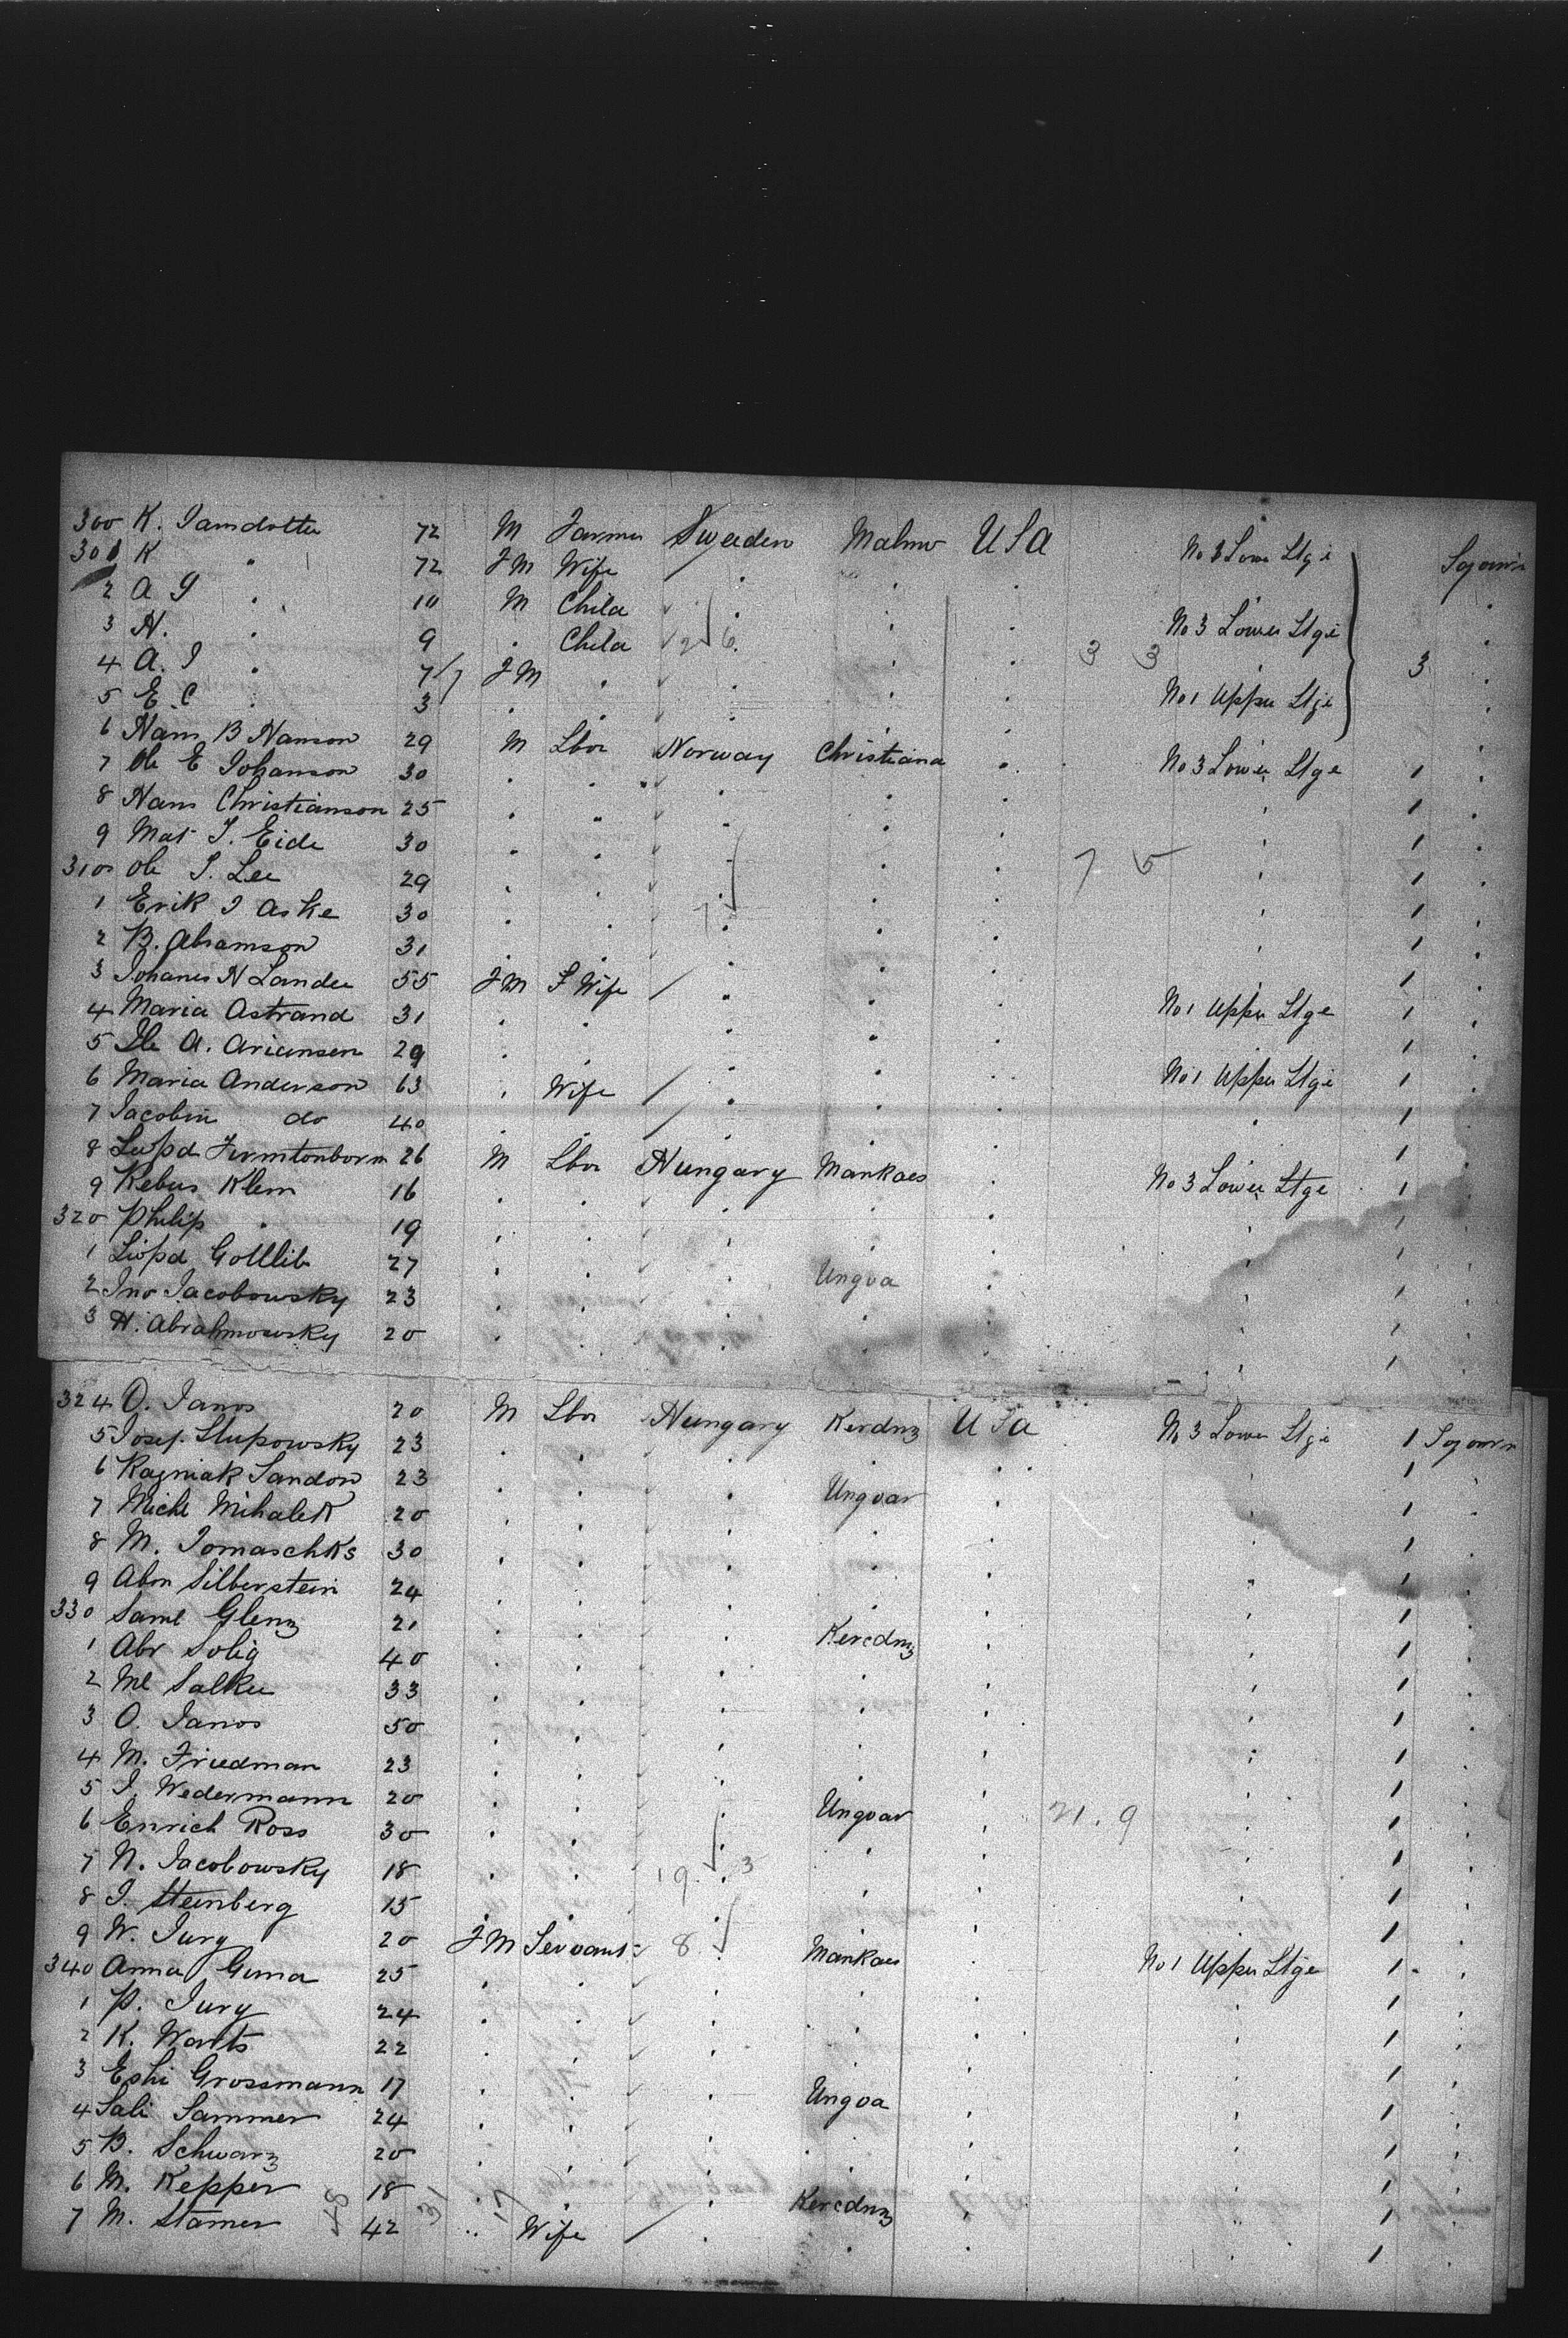 300 K. Jansdotter 72 M Farmer Sweden Malmo USA No 3 Lower Stge Sojourn
301 K " 72 FM Wife
2 A G " 10 M Child
3 N. " 9 " Child 2 6 No 3 Lower Stge
4 A. I " 7 FM " 3 3 3
5 E. C " 3 No 1 Upper Stge
6 Hans B Hanson 29 M Lbor Norway Christiana
7 Ole E Johanson 30 No 3 Lower Stge 1
8 Hans Christianson 25 1
9 Mat J. Eide 30 1
310 Ole S. Lee 29 7 5 1
1 Erik J Aske 30 7 1
2 B. Abramson 31 1
3 Johanes N Landee 55 FM S Wife 1
4 Maria Astrand 31 No 1 Upper Stge 1
5 Ile A. Ariansen 29 1
6 Maria Anderson 63 " Wife No 1 Upper Stge 1
7 Jacobin do 40 1
8 Leopd 26 M Lbor Hungary Mankaes 1
9 Kebus Klem 16 No 3 Lower Stge 1
320 Philip " 19 1
1 Liopd Gottlib 27 1
2 Jno Jacobowsky 23 Ungva 1
3 H. Abrahmowsky 20 1
324 O. Janos 20 M Lbor Hungary Kerdnz USA No 3 Lower Stge 1 Sojourn
5 Josef. Slupowsky 23 1
6 Kazniak Sandow 23 Ungvar 1
7 Michl Mihalek 20 1
8 M. Tomaschks 30 1
9 Abm Silberstein 24 1
330 Saml Glenz 21 1
1 Abr Solig 40 Kercdnz 1
2 Ml Salker 33 1
3 O. Janos 50 1
4 M. Friedman 23 1
5 J. Wedermann 20 1
6 Enrich Ross 30 Ungvar 21. 9 1
7 N. Jacobowsky 18 19 3 1
8 J. Steinberg 15 1
9 W. Jury 20 FM Servant 8 Mankaes 1
340 Anna Guna 25 No 1 Upper Stge 1
1 P. Jury 24 1
2 K. Warts 22 1
3 Eshi Grossmann 17 1
4 Sali Sammer 24 Ungva 1
5 B. Schwarz 20 1
6 M. Kepper 18 1
7 M. Stamer 48 42 31 17 " Wife Kercdnz 1